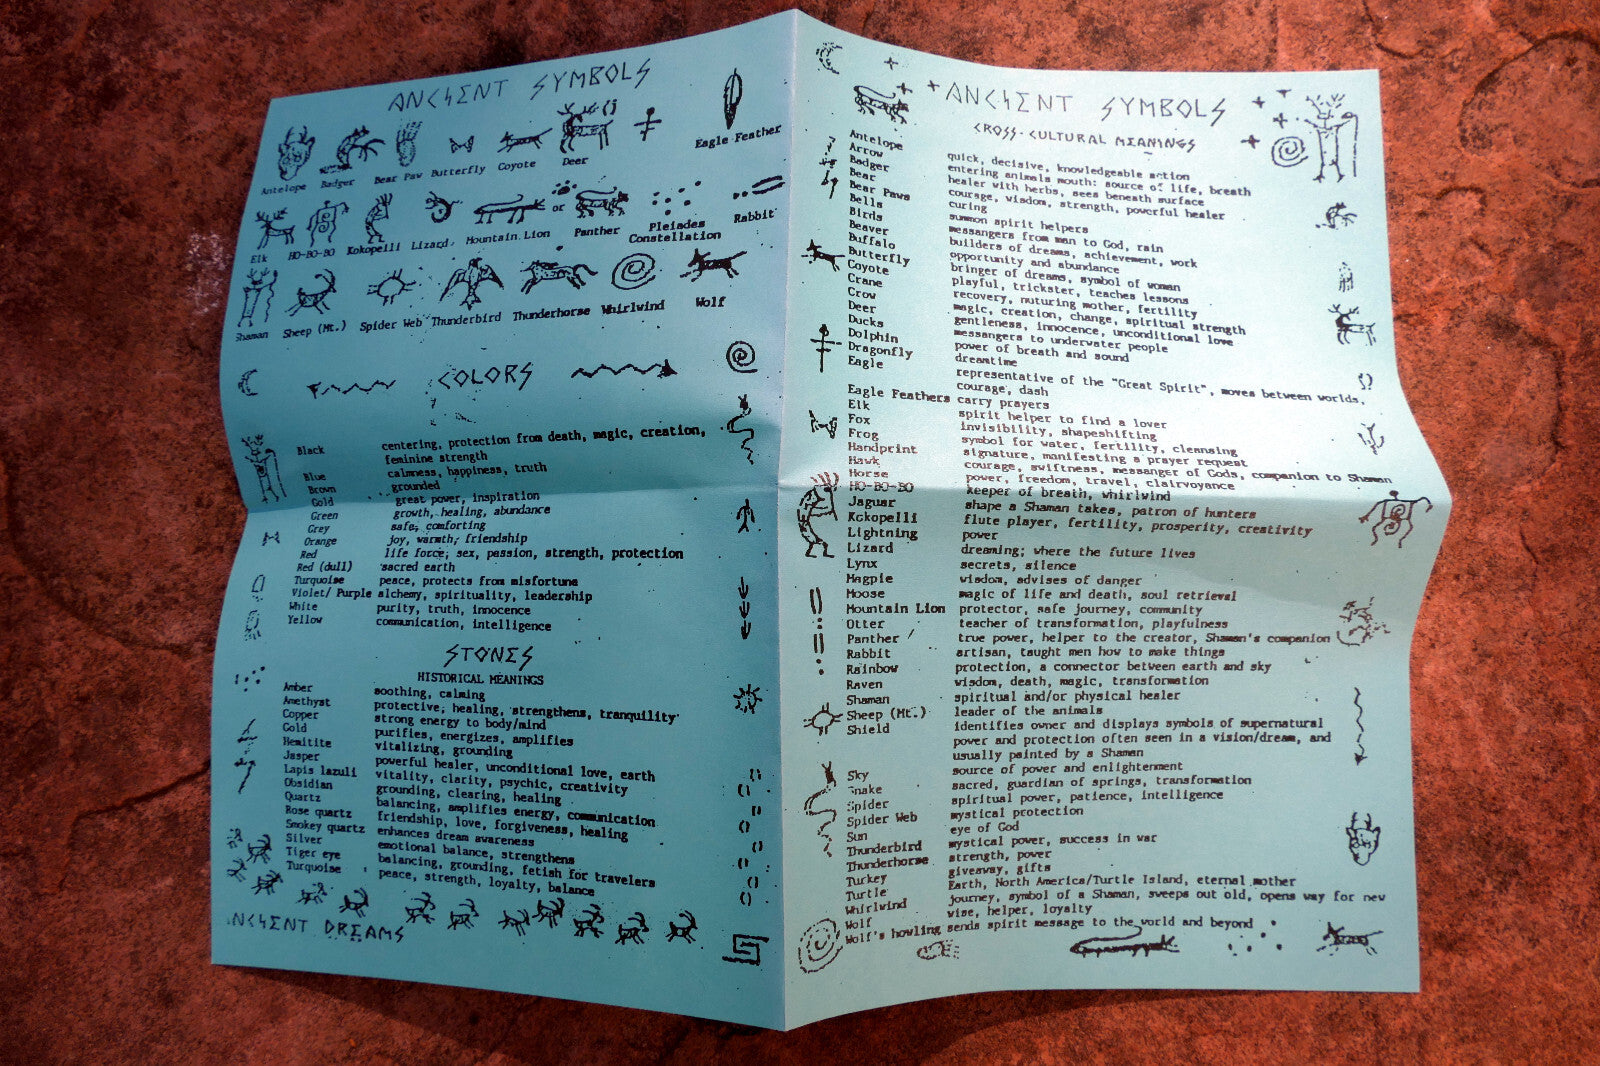 ANCIENT SYMBOLS
Eagle Feather
Antelope Badger Bear Paw Butterfly Coyote Deer
Elk HO-BO-BO Kokopelli Lizard Mountain Lion or Panther Pleiades Constellation Rabbit
Shaman Sheep (Mt.) Spider Web Thunderbird Thunderhorse Whirlwind Wolf
COLORS
Black centering, protection from death, magic, creation,
feminine strength
Blue calmness, happiness, truth
Brown grounded
Gold great power, inspiration
Green growth, healing, abundance
Grey safe, comforting
Orange joy, warmth, friendship
Red life force, sex, passion, strength, protection
Red (dull) sacred earth
Turquoise peace, protects from misfortune
Violet/ Purple alchemy, spirituality, leadership
White purity, truth, innocence
Yellow communication, intelligence
STONES
HISTORICAL MEANINGS
Amber soothing, calming
Amethyst protective, healing, strengthens, tranquility
Copper strong energy to body/mind
Gold purifies, energizes, amplifies
Hemitite vitalizing, grounding
Jasper powerful healer, unconditional love, earth
Lapis lazuli vitality, clarity, psychic, creativity
Obsidian grounding, clearing, healing
Quartz balancing, amplifies energy, communication
Rose quartz friendship, love, forgiveness, healing
Smokey quartz enhances dream awareness
Silver emotional balance, strengthens
Tiger eye balancing, grounding, fetish for travelers
Turquoise peace, strength, loyalty, balance
ANCIENT DREAMS
ANCIENT SYMBOLS
CROSS-CULTURAL MEANINGS
Antelope quick, decisive, knowledgeable action
Arrow entering animals mouth: source of life, breath
Badger healer with herbs, sees beneath surface
Bear courage, wisdom, strength, powerful healer
Bear Paws curing
Bells summon spirit helpers
Birds messangers from man to God, rain
Beaver builders of dreams, achievement, work
Buffalo opportunity and abundance
Butterfly bringer of dreams, symbol of woman
Coyote playful, trickster, teaches lessons
Crane recovery, nuturing mother, fertility
Crow magic, creation, change, spiritual strength
Deer gentleness, innocence, unconditional love
Ducks messangers to underwater people
Dolphin power of breath and sound
Dragonfly dreamtime
Eagle representative of the "Great Spirit", moves between worlds,
courage, dash
Eagle Feathers carry prayers
Elk spirit helper to find a lover
Fox invisibility, shapeshifting
Frog symbol for water, fertility, cleansing
Handprint signature, manifesting a prayer request
Hawk courage, swiftness, messanger of Gods, companion to Shaman
Horse power, freedom, travel, clairvoyance
HO-BO-BO keeper of breath, whirlwind
Jaguar shape a Shaman takes, patron of hunters
Kokopelli flute player, fertility, prosperity, creativity
Lightning power
Lizard dreaming; where the future lives
Lynx secrets, silence
Magpie wisdom, advises of danger
Moose magic of life and death, soul retrieval
Mountain Lion protector, safe journey, community
Otter teacher of transformation, playfulness
Panther true power, helper to the creator, Shaman's companion
Rabbit artisan, taught men how to make things
Rainbow protection, a connector between earth and sky
Raven wisdom, death, magic, transformation
Shaman spiritual and/or physical healer
Sheep (Mt.) leader of the animals
Shield identifies owner and displays symbols of supernatural
power and protection often seen in a vision/dream, and
usually painted by a Shaman
Sky source of power and enlightenment
Snake sacred, guardian of springs, transformation
Spider spiritual power, patience, intelligence
Spider Web mystical protection
Sun eye of God
Thunderbird mystical power, success in war
Thunderhorse strength, power
Turkey giveaway, gifts
Turtle Earth, North America/Turtle Island, eternal mother
Whirlwind journey, symbol of a Shaman, sweeps out old, opens way for new
Wolf wise, helper, loyalty
Wolf's howling sends spirit message to the world and beyond